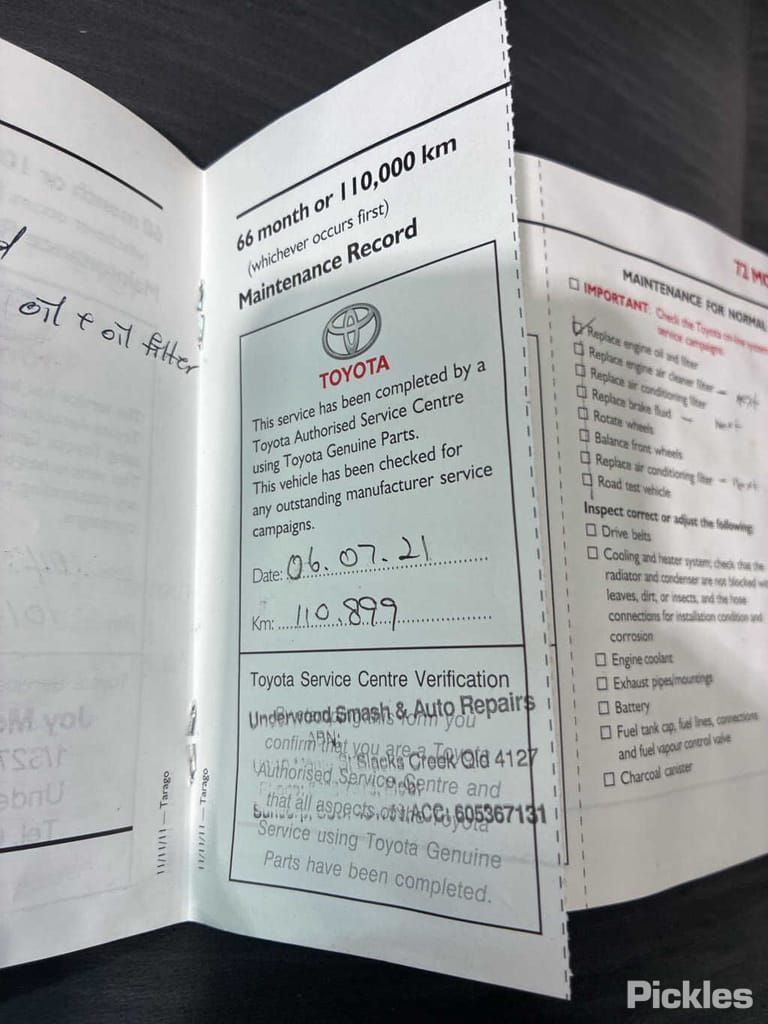 oil + oil filter
11/11/11 — Tarago
66 month or 110,000 km
(whichever occurs first)
Maintenance Record
TOYOTA
This service has been completed by a
Toyota Authorised Service Centre
using Toyota Genuine Parts.
This vehicle has been checked for
any outstanding manufacturer service
campaigns.
Date: 06.07.21
Km: 110,899
Toyota Service Centre Verification
Underwood Smash & Auto Repairs
confirm that you are a Toyota
ABN:
Slacks Creek Qld 4127
Authorised Service Centre and
ACC: 605367131
that all aspects of
Service using Toyota Genuine
Parts have been completed.
11/11/11 — Tarago
72 MO
MAINTENANCE FOR NORMAL
IMPORTANT: Check the Toyota on-line system
service campaigns
Replace engine oil and filter
Replace engine air cleaner filter — next
Replace air conditioning filter
Replace brake fluid — Next
Rotate wheels
Balance front wheels
Replace air conditioning filter — Next
Road test vehicle
Inspect correct or adjust the following:
Drive belts
Cooling and heater system; check that the
radiator and condenser are not blocked with
leaves, dirt, or insects, and the hose
connections for installation condition and
corrosion
Engine coolant
Exhaust pipes/mountings
Battery
Fuel tank cap, fuel lines, connections
and fuel vapour control valve
Charcoal canister
Pickles